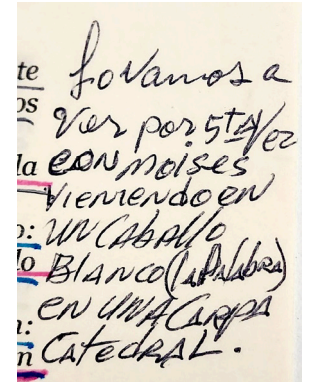 te
os
la
o:
lo
n:
m
LoVamos a
Ver por 5ta Vez
CON moises
Vieniendo en
UN CABALLO
BLANCO (LA PALABRA)
EN UNA CARPA
CATEDRAL.